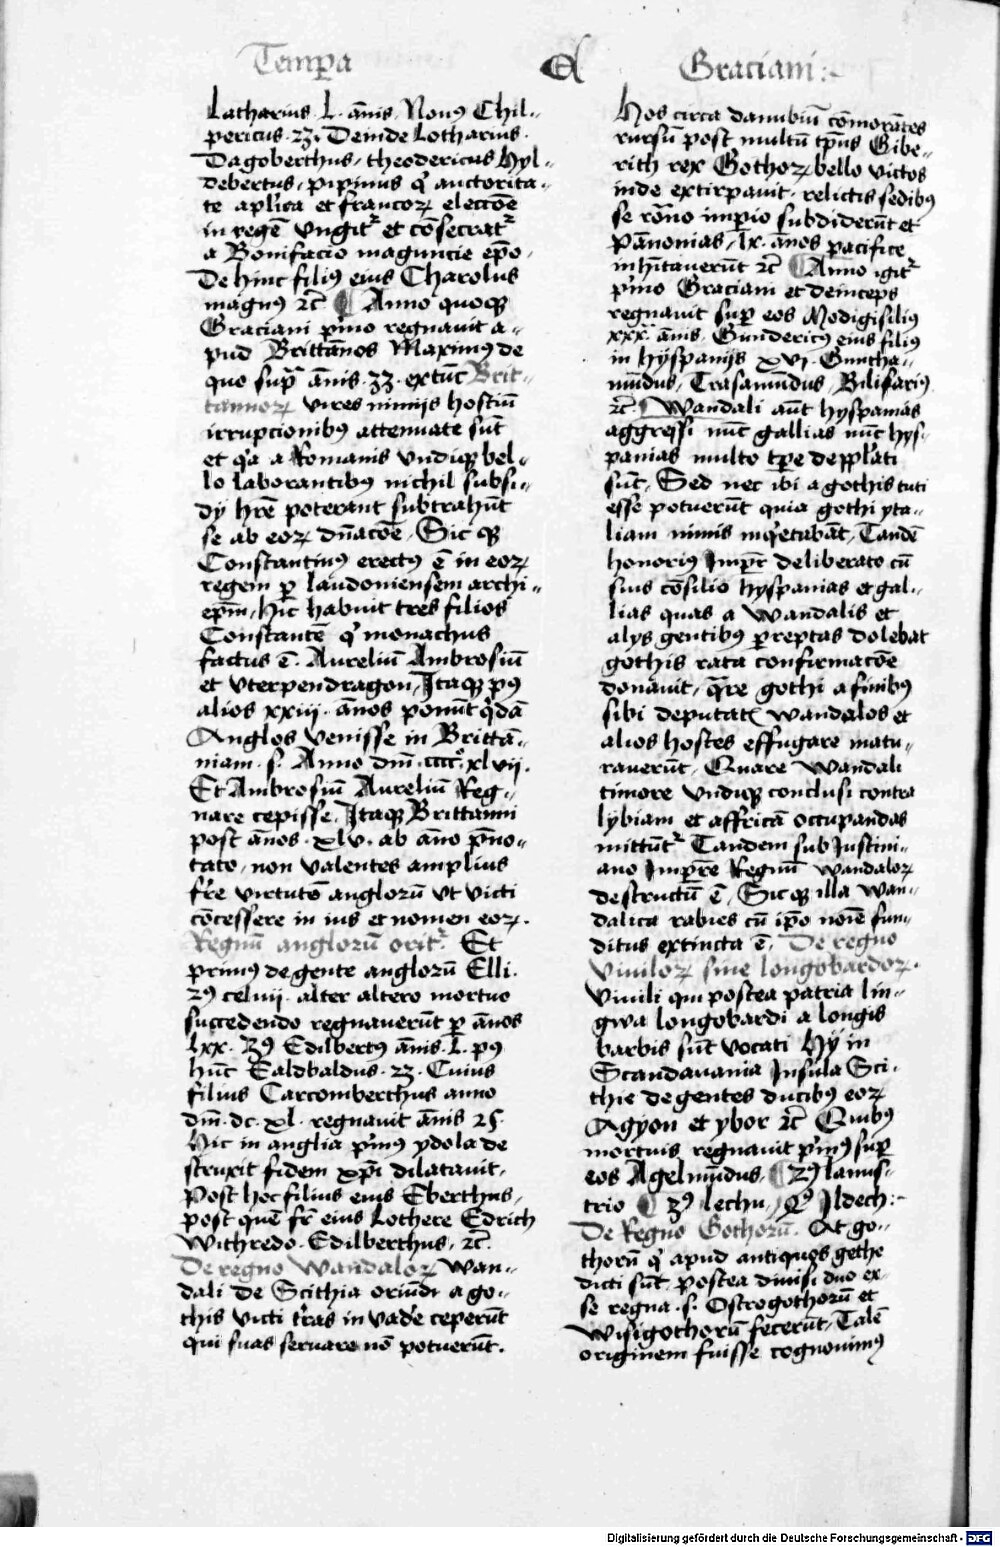 Temp̲a
Graciani:
Latharius · L · ānis · Nonꝰ Chil-
pericus · 23 · Deinde Lotharius ·
Dagoberthus, theodericus Hyl-
debertus, pipinus q̄ auctorita-
te aplica et francoꝝ eleccōe
in regē vngitᷣ et cōsecratᷣ
a Bonifacio maguncie ep̄o ·
De hinc filiꝰ eius Charolus
magnus ⁊c̄ ¶ Anno quoqꝫ
Graciani p̄mo regnauit a-
pud Brittānos Maximꝰ de
quo sup̄ ānis · 33 · extūc Brit-
tannoꝝ vires nimijs hostiū
irrupcionibꝰ attenuate sūt
et q̄a a Romanis vndiqꝫ bel-
lo laborantibꝰ nichil subsi-
dÿ h̄re poterant subtrahūt
se ab eoꝝ dn̄acōe, Sic qꝫ
Constantinus erectꝰ ē in eoꝝ
regem ꝑ laudoniensem archi-
ep̄m, Hic habuit tres filios
Constantē q̄ monachus
factus ē · Aureliū Ambrosiū
et vterpendragon, Itaqꝫ pꝰ
alios xxiij · ānos ponūt q̄dā
Anglos venisse in Brittā-
niam · s · Anno dn̄i · ccccº xlvij ·
Et Ambrosiū Aureliū Reg-
nare cepisse, Itaqꝫ Brittanni
post ānos · xlv · ab āno p̄no-
tato, non valentes amplius
fr̄e virtutē anglorū vt victi
cōcessere in ius et nomen eoꝝ ·
Regnū anglorū oritᷣ · Et
primꝰ de gente anglorū Elli ·
2ꝰ celuij · alter altero mortuo
succedendo regnauerūt ꝑ ānos
lxx · 3ꝰ Edilbertꝰ ānis · L · pꝰ
hūc Ealdbaldus · 23 · Cuius
filius Carcomberthus anno
dn̄i · dc · xl · regnauit ānis 25 ·
Hic in anglia p̄mꝰ ydola de
struxit fidem xp̄i dilatauit,
Post hoc filius eius Eberthus,
post quē fr̄ eius Lothere Edrich
Withredo · Edilberthus, ⁊c̄ ·
De regno Wandaloꝝ Wan-
dali de Scithia oriūdi a go-
this victi t̄ras in vade ceperūt
qui suas seruare nō potuerūt ·
Hos circa danubiū cōmorātes
rursū post multū tp̄us Gibe-
rich rex Gothoꝝ bello victos
inde extirpauit · relictis sedibꝰ
se rōno imp̄io subdiderūt et
Pānonias, lx · ānos pacifice
inh̄itauerūt ⁊c̄ ¶ Anno igitᷣ
p̄mo Graciani et deinceps
regnauit suꝑ eos Modigisiliꝰ
xxx · ānis, Gundericꝰ eius filiꝰ
in hÿspanijs xvj · Guntha-
mūdus, Trasamūdus, Bilisariꝰ
⁊c̄ Wandali aūt hyspanias
aggressi nūc gallias nūc hys-
panias multo tp̄e depp̄lati
sūt, Sed nec ibi a gothis tuti
esse potuerūt quia gothi yta-
liam nimis inq̄etabāt, Tandē
honorius Imp̄r deliberato cū
suis cōsilio hyspanias et gal-
lias quas a Wandalis et
alys gentibꝰ p̄reptas dolebat
gothis rata confirmacōe
donauit, q̄re gothi a finibꝰ
sibi deputatꝭ wandalos et
alios hostes effugare matu-
rauerūt, Quare Wandali
timore vndiqꝫ conclusi contra
lybiam et affricā occupandas
mittūtᷣ Tandem sub Justini-
ano Imp̄re Regnū wandaloꝝ
destructū ē, Sic qꝫ illa Wan-
dalica rabies cū ip̄o noīe fun-
ditus extincta ē, De regno
Viniloꝝ siue longobardoꝝ ·
Vinili qui postea patria lin-
gwa longobardi a longis
barbis sūt vocati Hÿ in
Scandauania Insula Sci-
thie degentes ducibꝰ eoꝝ
Agyon et ybor ⁊c̄ Quibꝰ
mortuis regnauit p̄mꝰ suꝑ
eos Agelmūdus, ¶ 2ꝰ lamis-
trio ¶ 3ꝰ lechu, 4ꝰ Ildech:
De Regno Gothorū · At go-
thorū q̄ apud antiquos gethe
dicti sūt, postea diuisi duo ex-
se regna · s · Ostrogothorū et
Wisigothorū fecerūt, Talē
originem fuisse cognouimꝰ
Digitalisierung gefördert durch die Deutsche Forschungsgemeinschaft - DFG